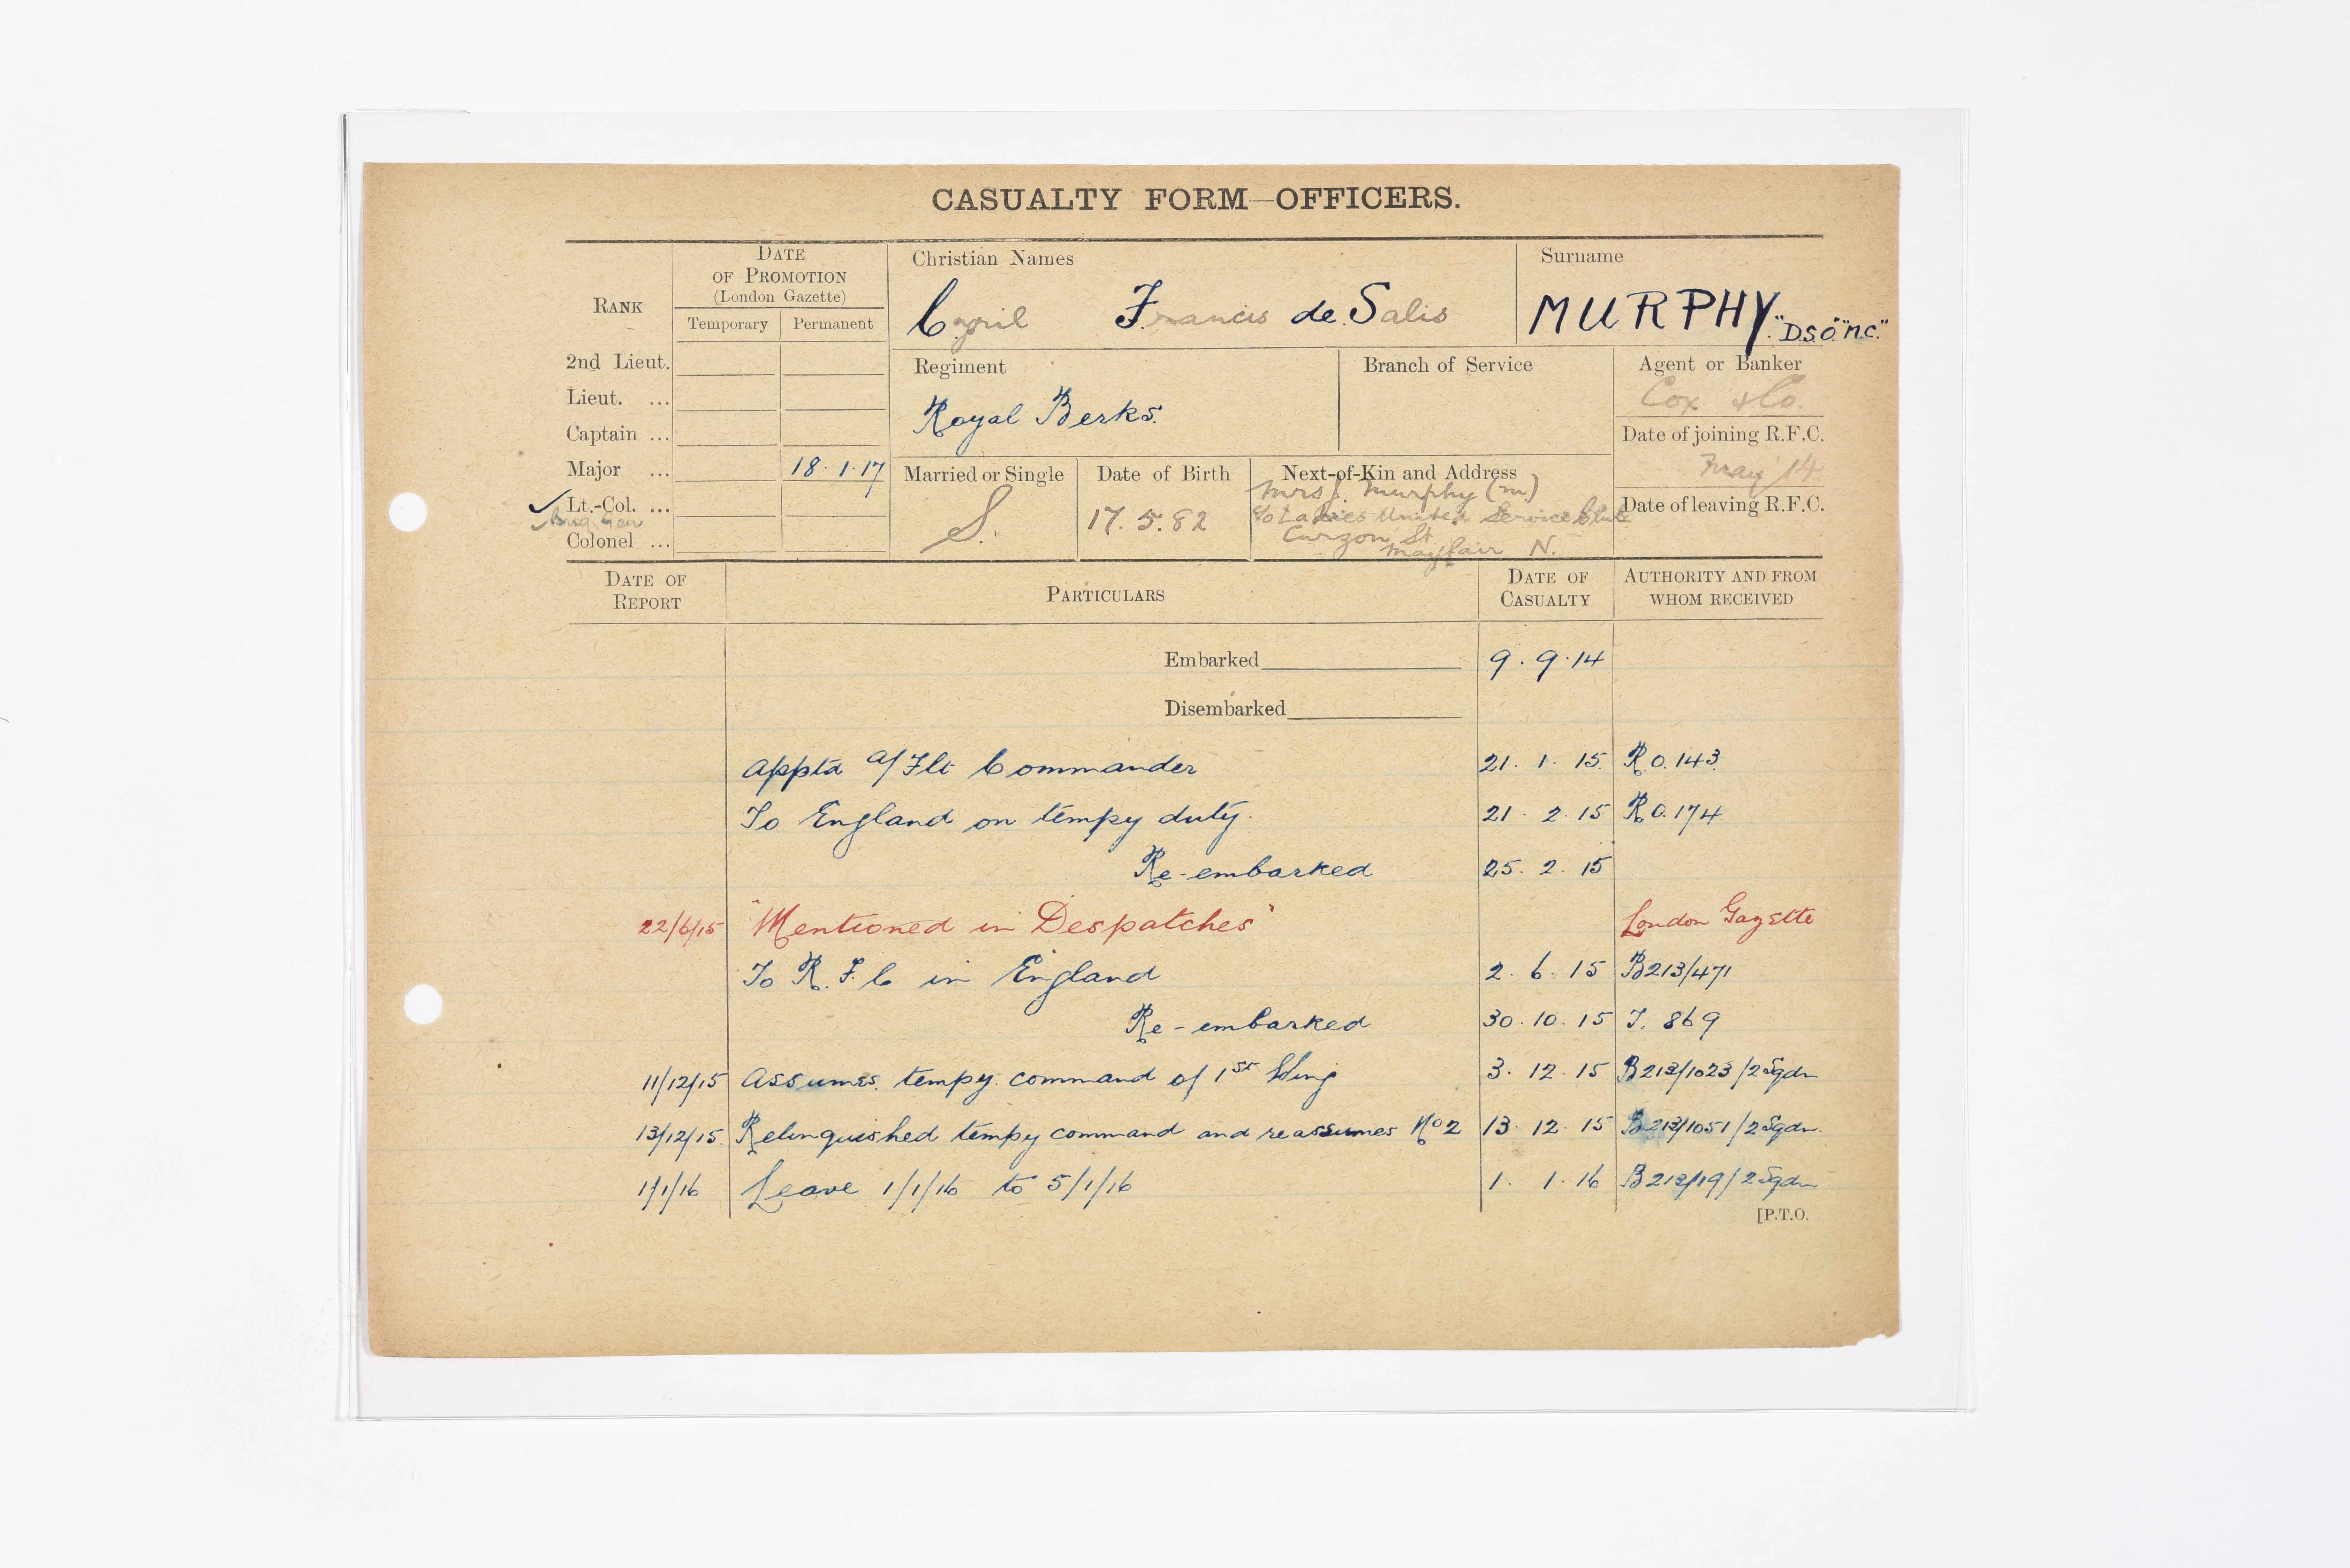 CASUALTY FORM—OFFICERS.
RANK
DATE OF PROMOTION (London Gazette)
Temporary Permanent
Christian Names
Cyril Francis de Salis
Surname
MURPHY. "D.S.O." "M.C."
2nd Lieut.
Lieut. ...
Captain ...
Major ... 18.1.17
✓ Lt.-Col. ...
✓ Brig. Gen
Colonel ...
Regiment
Royal Berks.
Branch of Service
Agent or Banker
Cox & Co.
Date of joining R.F.C.
May 14
Date of leaving R.F.C.
Married or Single
S.
Date of Birth
17.5.82
Next-of-Kin and Address
Mrs J. Murphy (m)
c/o Ladies United Service Club
Curzon St.
Mayfair N.
DATE OF REPORT PARTICULARS DATE OF CASUALTY AUTHORITY AND FROM WHOM RECEIVED
Embarked 9.9.14
Disembarked
Apptd a/Flt Commander 21.1.15. R.O.143.
To England on tempy duty. 21.2.15 R.O.174
Re-embarked 25.2.15
22/6/15 "Mentioned in Despatches" London Gazette
To R.F.C in England 2.6.15 B213/471
Re-embarked 30.10.15 T.869
11/12/15 Assumes. tempy. command of 1st Wing 3.12.15 B213/1023/2Sqdn
13/12/15. Relinquished tempy command and reassumes No 2 13.12.15 B213/1051/2Sqdn.
1/1/16 Leave 1/1/16 to 5/1/16 1.1.16 B213/19/2Sqdn
[P.T.O.